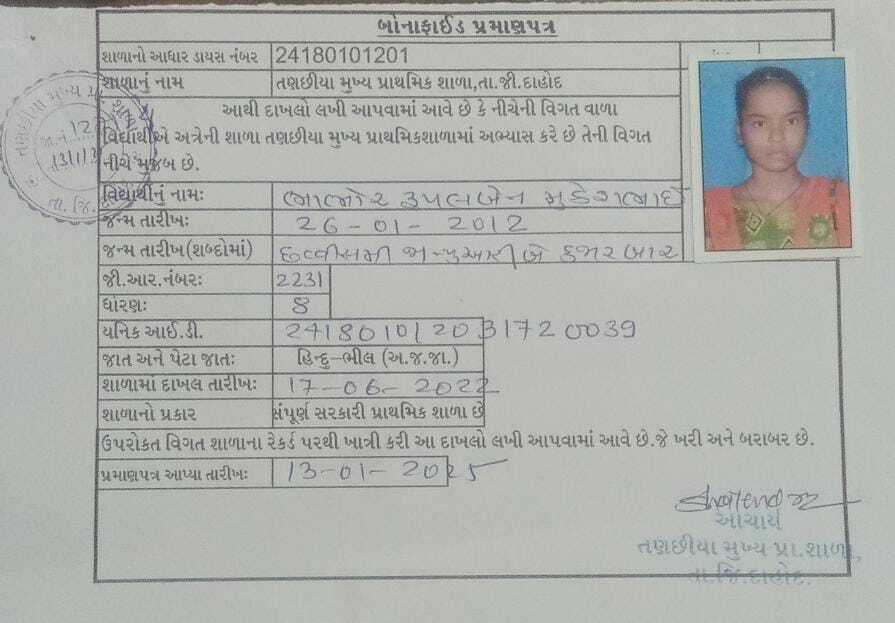 બોનાફાઈડ પ્રમાણપત્ર
શાળાનો આધાર ડાયસ નંબર 24180101201
શાળાનું નામ તણછીયા મુખ્ય પ્રાથમિક શાળા,તા.જી.દાહોદ
આથી દાખલો લખી આપવામાં આવે છે કે નીચેની વિગત વાળા
વિદ્યાર્થીએ અત્રેની શાળા તણછીયા મુખ્ય પ્રાથમિકશાળામાં અભ્યાસ કરે છે તેની વિગત
નીચે મુજબ છે.
વિદ્યાર્થીનું નામઃ ભાભોર રૂપલબેન મુકેશભાઈ
જન્મ તારીખઃ 26-01-2012
જન્મ તારીખ(શબ્દોમાં) છવ્વીસમી જાન્યુઆરી બે હજાર બાર
જી.આર.નંબરઃ 2231
ધોરણઃ 8
યનિક આઈ.ડી. 241801012031720039
જાત અને પેટા જાતઃ હિન્દુ-ભીલ (અ.જ.જા.)
શાળામાં દાખલ તારીખઃ 17-06-2022
શાળાનો પ્રકાર સંપૂર્ણ સરકારી પ્રાથમિક શાળા છે
ઉપરોકત વિગત શાળાના રેકર્ડ પરથી ખાત્રી કરી આ દાખલો લખી આપવામાં આવે છે.જે ખરી અને બરાબર છે.
પ્રમાણપત્ર આપ્યા તારીખઃ 13-01-2025
આચાર્ય
તણછીયા મુખ્ય પ્રા.શાળા,
તા.જિ.દાહોદ.